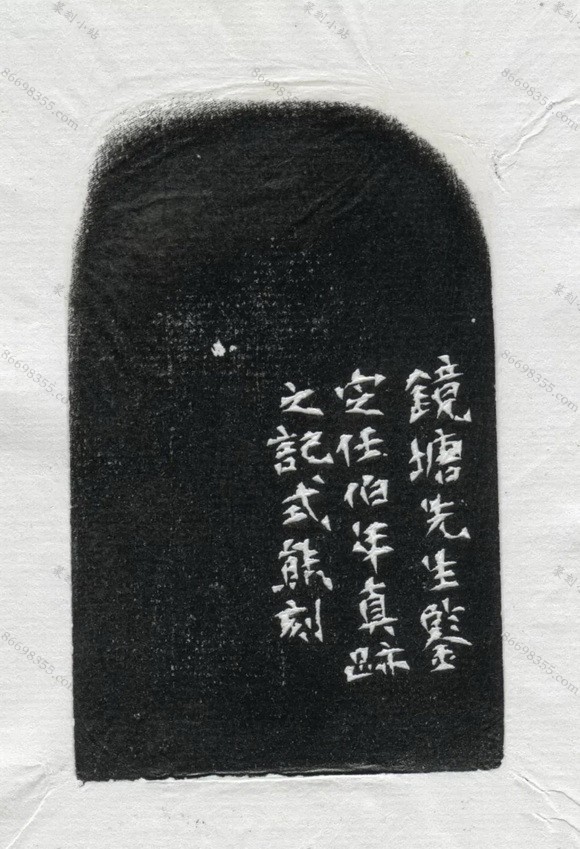 鏡塘先生鑒
定任伯年真跡
之記式熊刻
篆刻小站
86698355.com